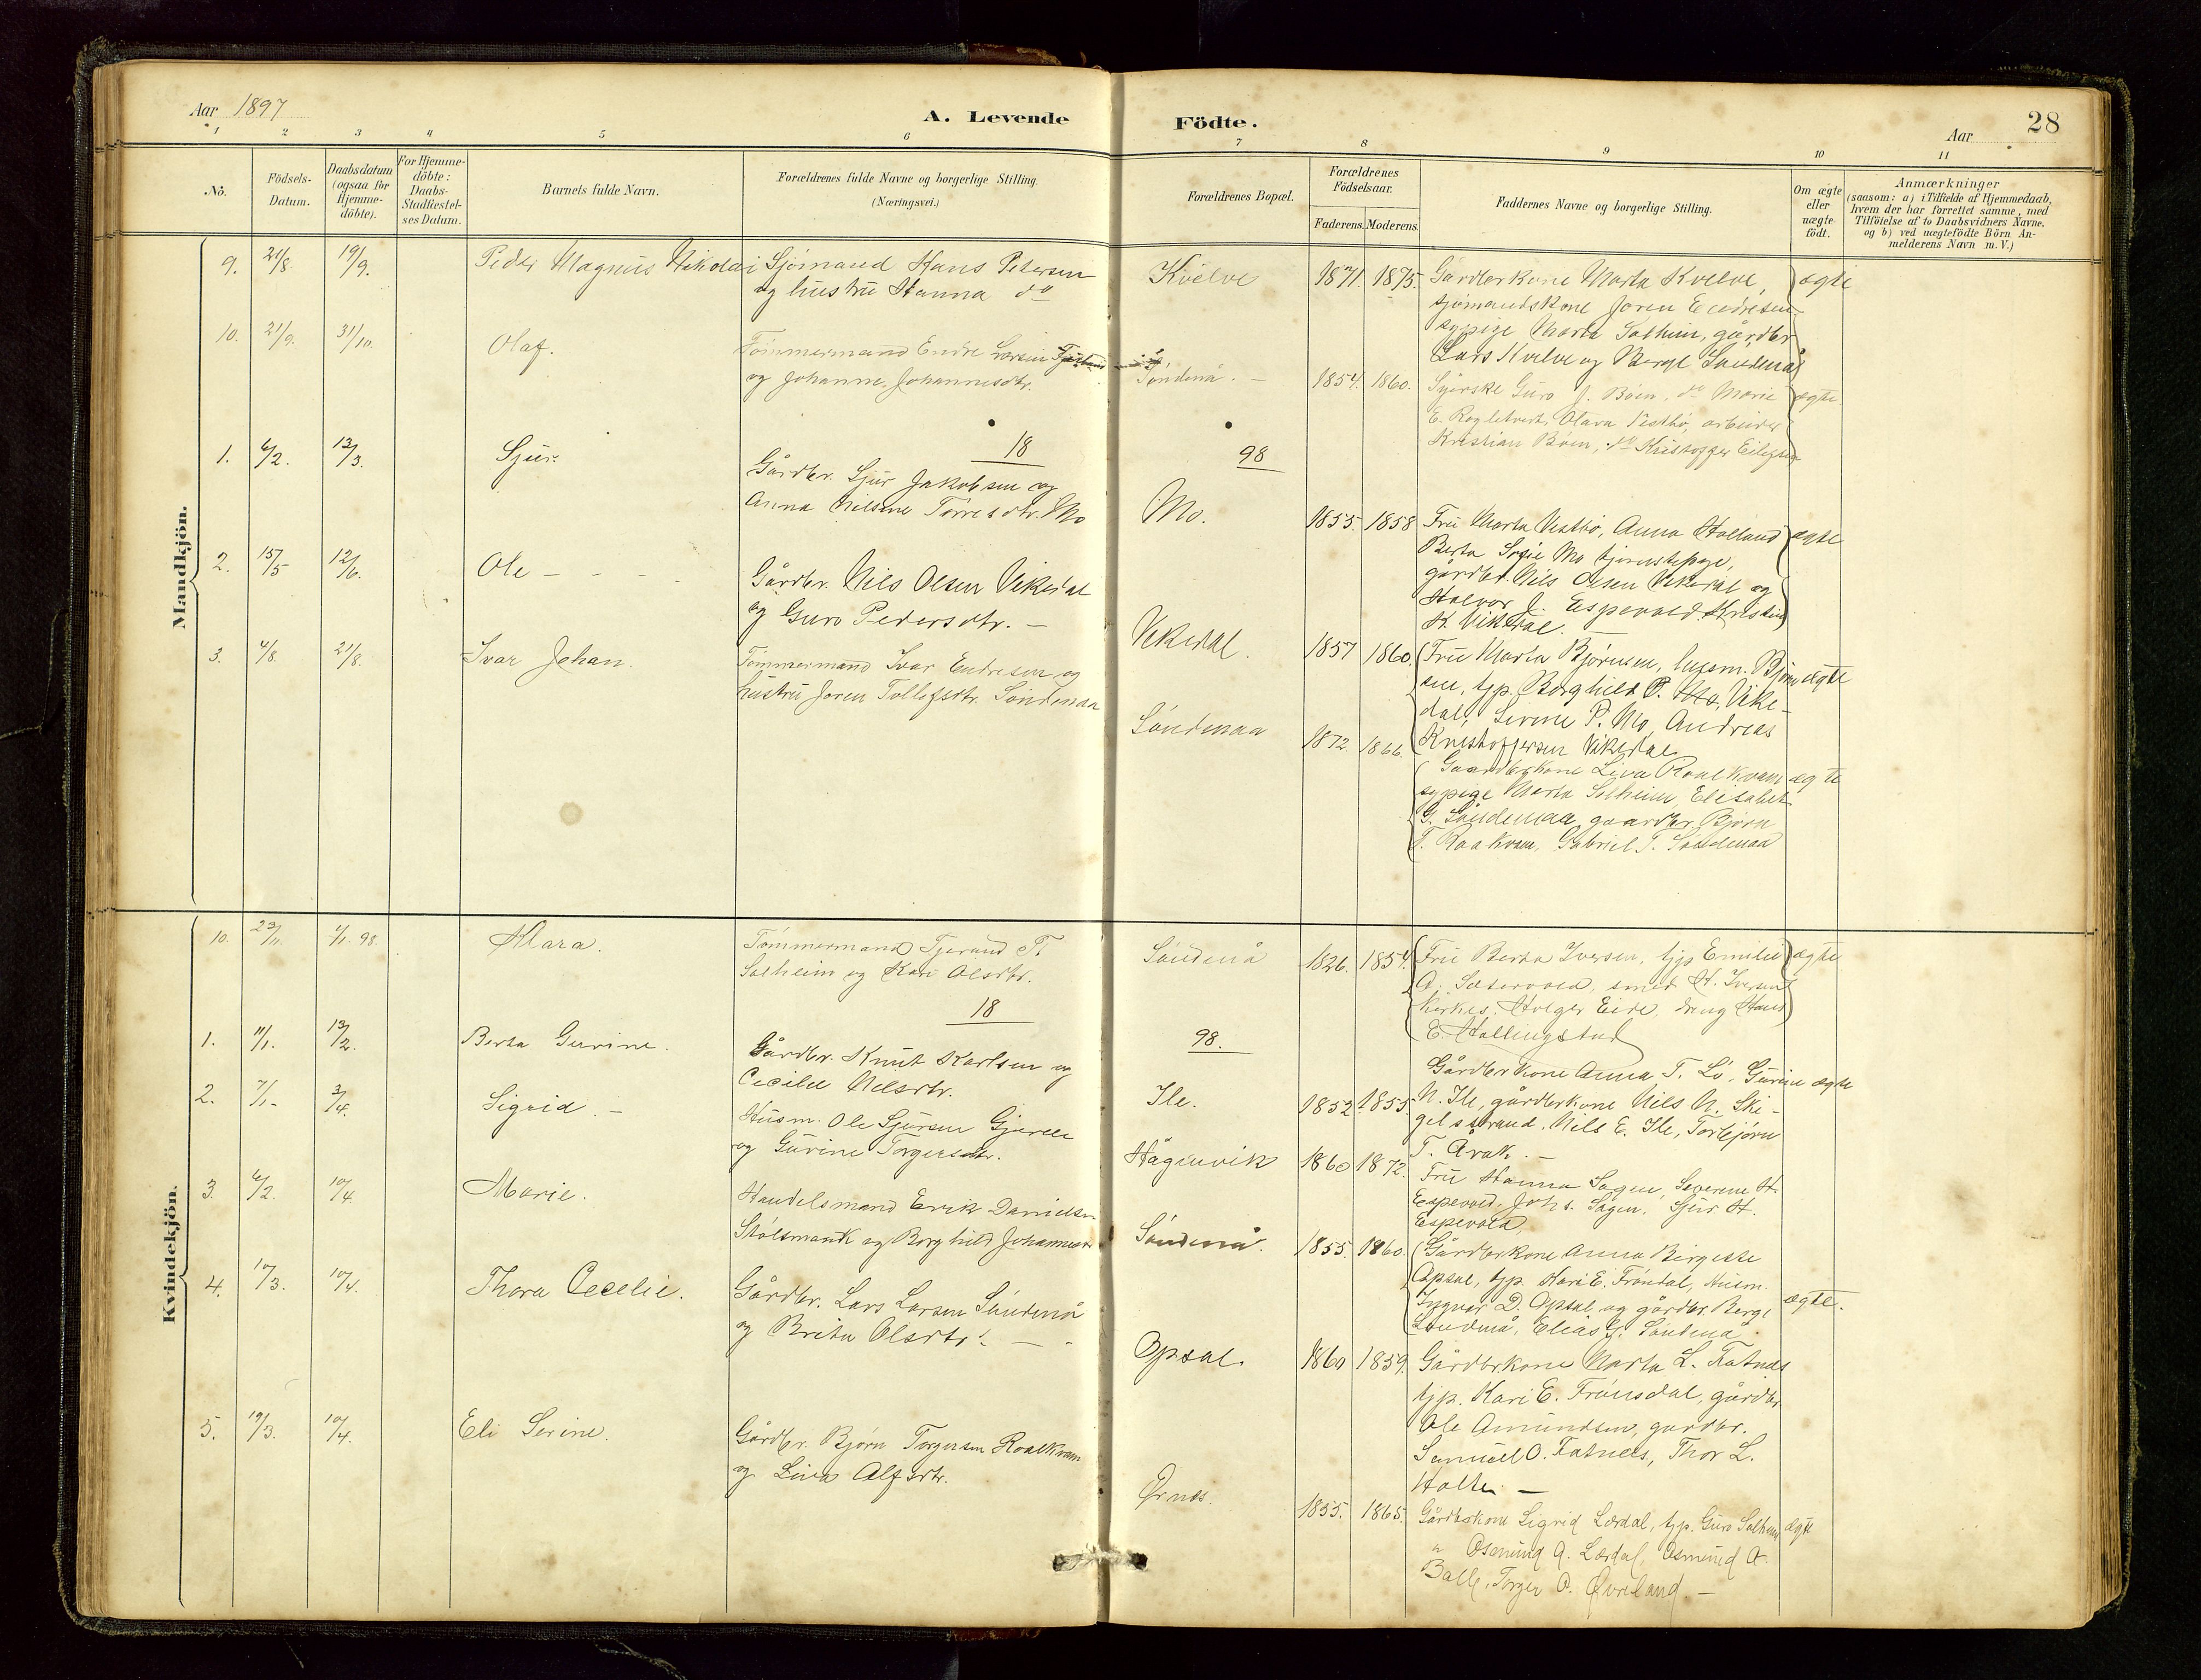 Aar 1897
A. Levende Födte.
Aar
28
1 2 3 4 5 6 7 8 9 10 11
No.
Födsels-Datum.
Daabsdatum (ogsaa for Hjemme-döbte).
For Hjemme-döbte: Daabs-Stadfæstel-ses Datum.
Barnets fulde Navn.
Forældrenes fulde Navne og borgerlige Stilling.
(Næringsvei.)
Forældrenes Bopæl.
Forældrenes Födselsaar.
Faderens. Moderens.
Faddernes Navne og borgerlige Stilling.
Om ægte eller uægte födt.
Anmærkninger
(saasom: a) i Tilfælde af Hjemmedaab, hvem der har forrettet samme, med Tilföielse af to Daabsvidners Navne, og b) ved uægtefödte Börn An-melderens Navn m. V.)
Mandkjön.
9. 21/8. 19/9. Peder Magnus Nikolai Sjömand Hans Petersen
og hustru Hanna do
Kvelve 1871. 1875. Gårdbrkone Marta Kvelve, ægte
sjömandskone Joren Endresen
sypige Marta Solheim, gårdbr
Lars Kvelve og Berge Søndenå
10. 21/9. 31/10. Olaf. Tömmermand Endre Larsen
og Johanne Johannesdtr.
Søndenå. 1854. 1860. Syerske Guro J. Böen, do Marie ægte
E. Olava Vestbö, arbeider
Kristian Böen, do Kristoffer
18 98
1. 6/2. 13/3. Sjur. Gårdbr. Sjur Jakobsen og
Anna Nilsine Torresdtr. Mo
Mo. 1855. 1858 Fru Marta Vestbö, Anna Holland ægte
Berta Sofie Mo tjenestepige,
gårdbr. Nils Olsen Vikedal og
Halvor J. Espevold. Kristian
K. Vikedal.
2. 15/5 12/6. Ole Gårdbr. Nils Olsen Vikedal
og Guro Pedersdtr.
Vikedal. 1857 1860. Fru Marta Björnsen, Björn ægte
sen, tjp. Borghild P. Mo, Vike-
dal, Sirine P. Mo, Andreas
Kristoffersen Vikedal
3. 4/8. 21/8. Ivar Johan. Tömmermand Ivar Endresen og
hustru Joren Tollefsdtr. Söndenaa
Söndenaa 1872. 1866. Gaardbrkone Liva Raalkvam ægte
sypige Marta Solheim, Elisabet
G. Söndenaa, gaardbr. Björn
T. Raakvam, Gabriel T. Söndenaa
Kvindekjön.
10. 23/11. 1/1. 98. Klara. Tömmermand Tjerand T.
Solheim og Kari Olsdtr.
Söndenå 1826. 1854. Fru Berta Iversen, tjp Emilie ægte
A. Sætervold, smed H. Iversen
Holger Eide, dreng Hans
E. Hallingstad
18 98.
1. 11/1. 13/2. Berta Gurine. Gårdbr. Knut Karlsen og
Cecilie Nilsdtr.
Ile. 1852 1855. Gårdbrkone Anna T. Lö, Gurine ægte
N. Ile, gårdbrkone Nils N. Ski-
gelstrand, Nils E. Ile, Torbjörn
T. Årak.
2. 7/1. 3/4. Sigrid. Husm. Ole Sjursen Gjerde
og Gurine Torgersdtr.
Hågenvik 1860 1872. Fru Hanna Sagen, Severine H.
Espevold, Johs. Sagen, Sjur H.
Espevold,
3. 6/2. 10/4. Marie. Handelsmand Erik Danielsen
og Borghild Johannesdtr
Söndenå. 1855. 1860. Gårdbrkone Anna Birgitte
Opsal, tjp. Kari E. Fröndal, Husm.
Ingvar D. Opsal og gårdbr. Berge ægte.
Söndenå, Elias G. Söndenå
4. 10/3. 10/4. Thora Cecelie. Gårdbr. Lars Larsen Söndenå
og Brita Olsdtr.
Opsal. 1860 1859. Gårdbrkone Marta L. Fatnes
tjp. Kari E. Frönsdal, gårdbr
Ole Amundsen, gårdbr.
Samuel O. Fatnes, Thor L.
Holten
5. 19/3. 10/4. Eli Serine. Gårdbr. Björn Torgersen Raalkvam
og Liva Alfsdtr.
Ørnes. 1855. 1865. Gårdbrkone Sigrid Lærdal, tjp. Guro Solheim ægte
Osmund A. Lærdal, Osmund A.
Balle, Torger O. Øvreland.